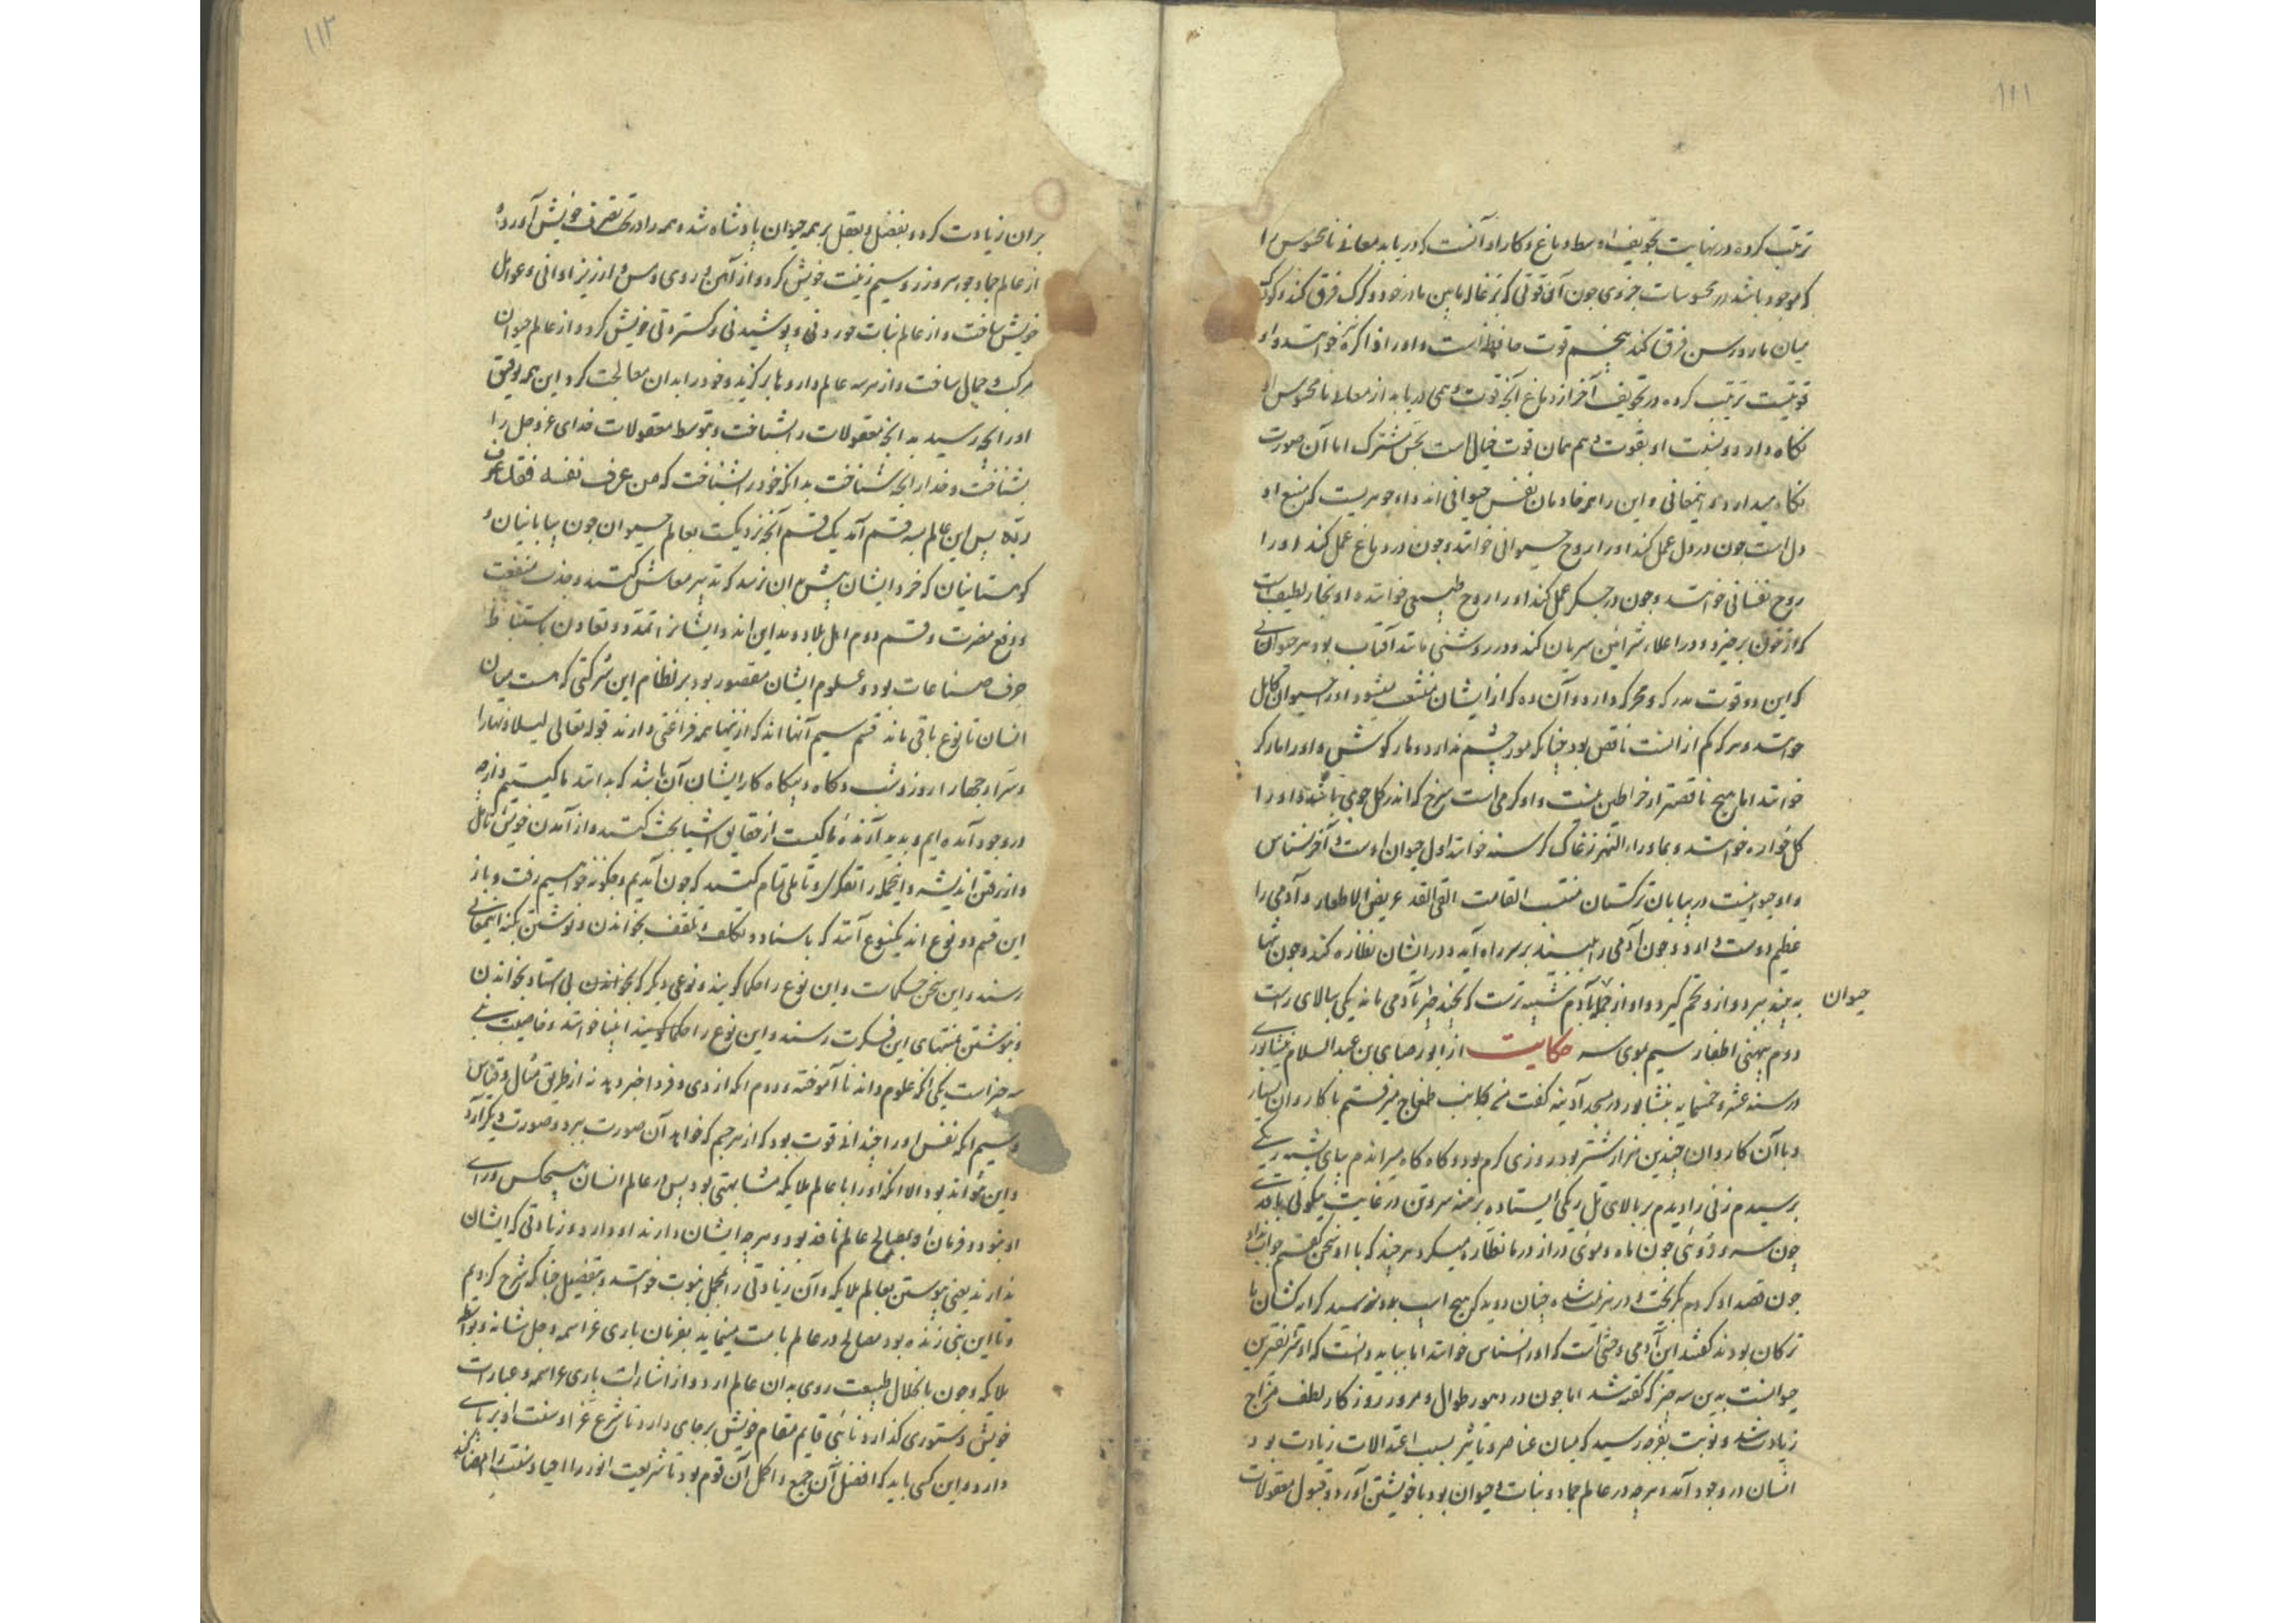 ۱۱۱
ترتیب کرده در نهایت تجویف اوسط دماغ و کار او آنست که در یابد معانی نامحسوس را
که موجود باشد در محسوسات جزوی چون آن قوتی که بزغاله مابین مادر خود و گرگ فرق کند و کودک
میان مار و رسن فرق کند پنجم قوت حافظه است و او را ذاکره خوانند و او
قوتیست ترتیب کرده در تجویف آخر از دماغ آنچه قوت وهمی در یابد از معانی نامحسوس او
نگاه دارد و نسبت او بقوت وهم همان قوت خیال است بحس مشترک اما آن صورت
نگاه میدارد و این معانی و این را همه خادمان نفس حیوانی اند و او جوهریست که منبع او
دل است چون در دل عمل کند او را روح حیوانی خوانند و چون در دماغ عمل کند او را
روح نفسانی خوانند و چون در جگر عمل کند او را روح طبیعی خوانند و او بخار لطیف است
که از خون برخیزد و در اعلاء شرائین سریان کند و در روشنی مانند آفتاب بود و هر حیوانی
که این دو قوت مدرکه و محرکه دارد و آن ده که از ایشان منشعب میشود او را حیوان کامل
خوانند و هر که کم از آنست ناقص بود چنانکه مور چشم ندارد و مار گوش و او را مار کر
خوانند اما هیچ ناقصتر از خراطین نیست و او کرمی است سرخ که اندر گل جوی باشد و او را
گل خواره خوانند و بماوراء النهر زغاک کرسنه خوانند اول حیوان اوست و آخر نسناس
و او حیوانیست در بیابان ترکستان منتصب القامت القی القد عریض الاظفار و آدمی را
عظیم دوست دارد و چون آدمی را بیند بر سر راه آید و در ایشان نظاره کند و چون تنها
بیند ببرد و از و تخم گیرد و او از جمله بآدم شبیه ترست که بچند چیز بآدمی ماند یکی ببالای راست
حیوان
دوم بپهنی اظفار سیم بموی سر حکایت از ابو رضای بن عبد السلام نیشابوری
در سنه عشر و خمسمایه بنیشابور در مسجد آدینه گفت که بجانب طمغاج میرفتم با کاروان بسیار
و با آن کاروان چندین هزار شتر بود روزی گرم بود و گاه گاه میراندم بپای پشته ریگی
برسیدم زنی را دیدم بر بالای تل ریگی ایستاده برهنه سر و تن در غایت نیکوئی با قدی
چون سرو و روئی چون ماه و موئی دراز در ما نظاره میکرد هر چند که با او سخن گفتم جواب نداد
چون قصد او کردم بگریخت و در هزیمت شد و چنان دوید که هیچ اسب بدو نرسید کراکشان ما
ترکان بودند گفتند این آدمی وحشی است که او را نسناس خوانند اما بباید دانست که او شریفترین
حیوانست بدین سه چیز که گفته شد اما چون در دهور طوال و مرور روزگار لطف مزاج
زیادت شد و نوبت بفرجه رسید که میان عناصر و تاثیر بسبب اعتدالات زیادت بود
انسان در وجود آمد و هر چه در عالم جماد و نبات و حیوان بود با خویشتن آورد و قبول معقولات
۱۱۲
بر آن زیادت کرد و بفضل و بعقل بر همه حیوان پادشاه شد و همه را در تحت تصرف خویش آورد و
از عالم جماد جوهر و زر و سیم زینت خویش کرد و از آهن و روی و مس و ارزیز اوانی و عوامل
خویش ساخت و از عالم نبات خوردنی و پوشیدنی و گستردنی خویش کرد و از عالم حیوان
مرکب و حمال ساخت و از هر سه عالم داروها برگزید و خود را بدان معالجت کرد این همه توفیق
او را بچه رسید بدانکه معقولات را شناخت و بتوسط معقولات خدای عزوجل را
بشناخت و خدا را بچه شناخت بدانکه خود را شناخت که من عرف نفسه فقد عرف
ربه پس این عالم بسه قسم آمد یک قسم آنکه نزدیکست بعالم حیوان چون بیابانیان و
کوهستانیان که خرد ایشان بیش از آن نرسد که تدبیر معاش کنند و جذب منفعت
و دفع مضرت و قسم دوم اهل بلاد و مداین اند و ایشانرا تمدد و تعاون باستنباط
حرف و صناعات بود و علوم ایشان مقصور بود بر نظام این شرکتی که هست میان
انسان تا نوع باقی ماند قسم سیم آنها اند که از اینها همه فراغتی دارند قوله تعالی لیلا و نهارا
و سرا و جهارا روز و شب و گاه و بیگاه کار ایشان آن باشد که بدانند ما کیستیم و از چه
در وجود آمده ایم و پدید آرنده ما کیست از حقایق اشیا بحث کنند و از آمدن خویش تامل
و از رفتن اندیشه و این جمله را تفکر و تاملی تمام کنند که چون آمدیم و چگونه خواهیم رفت و باز
این قسم دو نوع اند یک نوع آنند که باستاد و تکلف و تلقف بخواندن و نوشتن بکنه این معانی
رسند و این سخن حکماست و این نوع را حکما گویند و نوعی دیگر که بخواندن بی استاد بخواندن
و نوشتن بمنتهای این فکرت رسند و این نوع را حکما گویند انبیا خوانند و خاصیت نبی
سه چیز است یکی آنکه علوم داند نا آموخته و دوم آنکه از دی و فردا خبر دهد نه از طریق مثال و قیاس
و سیم آنکه نفس او را چندانی قوت بود که از هر جسم که خواهد آن صورت ببرد و صورت دیگر آرد
و این نتواند بود الا آنکه او را با عالم ملایکه مشابهتی بود پس در عالم انسان هیچکس ورای
او نبود و فرمان او بمصالح عالم نافذ بود و هر چه ایشان دارند او دارد و زیادتی که ایشان
ندارند یعنی پیوستن بعالم ملایکه و آن زیادتی را بمجمل نبوت خوانند و بتفضیل چنانکه شرح کردیم
و تا این نبی زنده بود مصالح در عالم بامت مینماید بفرمان باری عز اسمه و جل شانه و بواسطه
ملایکه و چون بانحلال طبیعت روی بدان عالم آرد و از اشارات باری عز اسمه و عبارات
خویش دستوری گذارد و نائبی قایم مقام خویش بر جای دارد تا شرع عز او سنت او بر پای
دارد و این کس باید که افضل آن جمع و اکمل آن قوم بود تا شریعت او را احیا و سنت را امضا کند